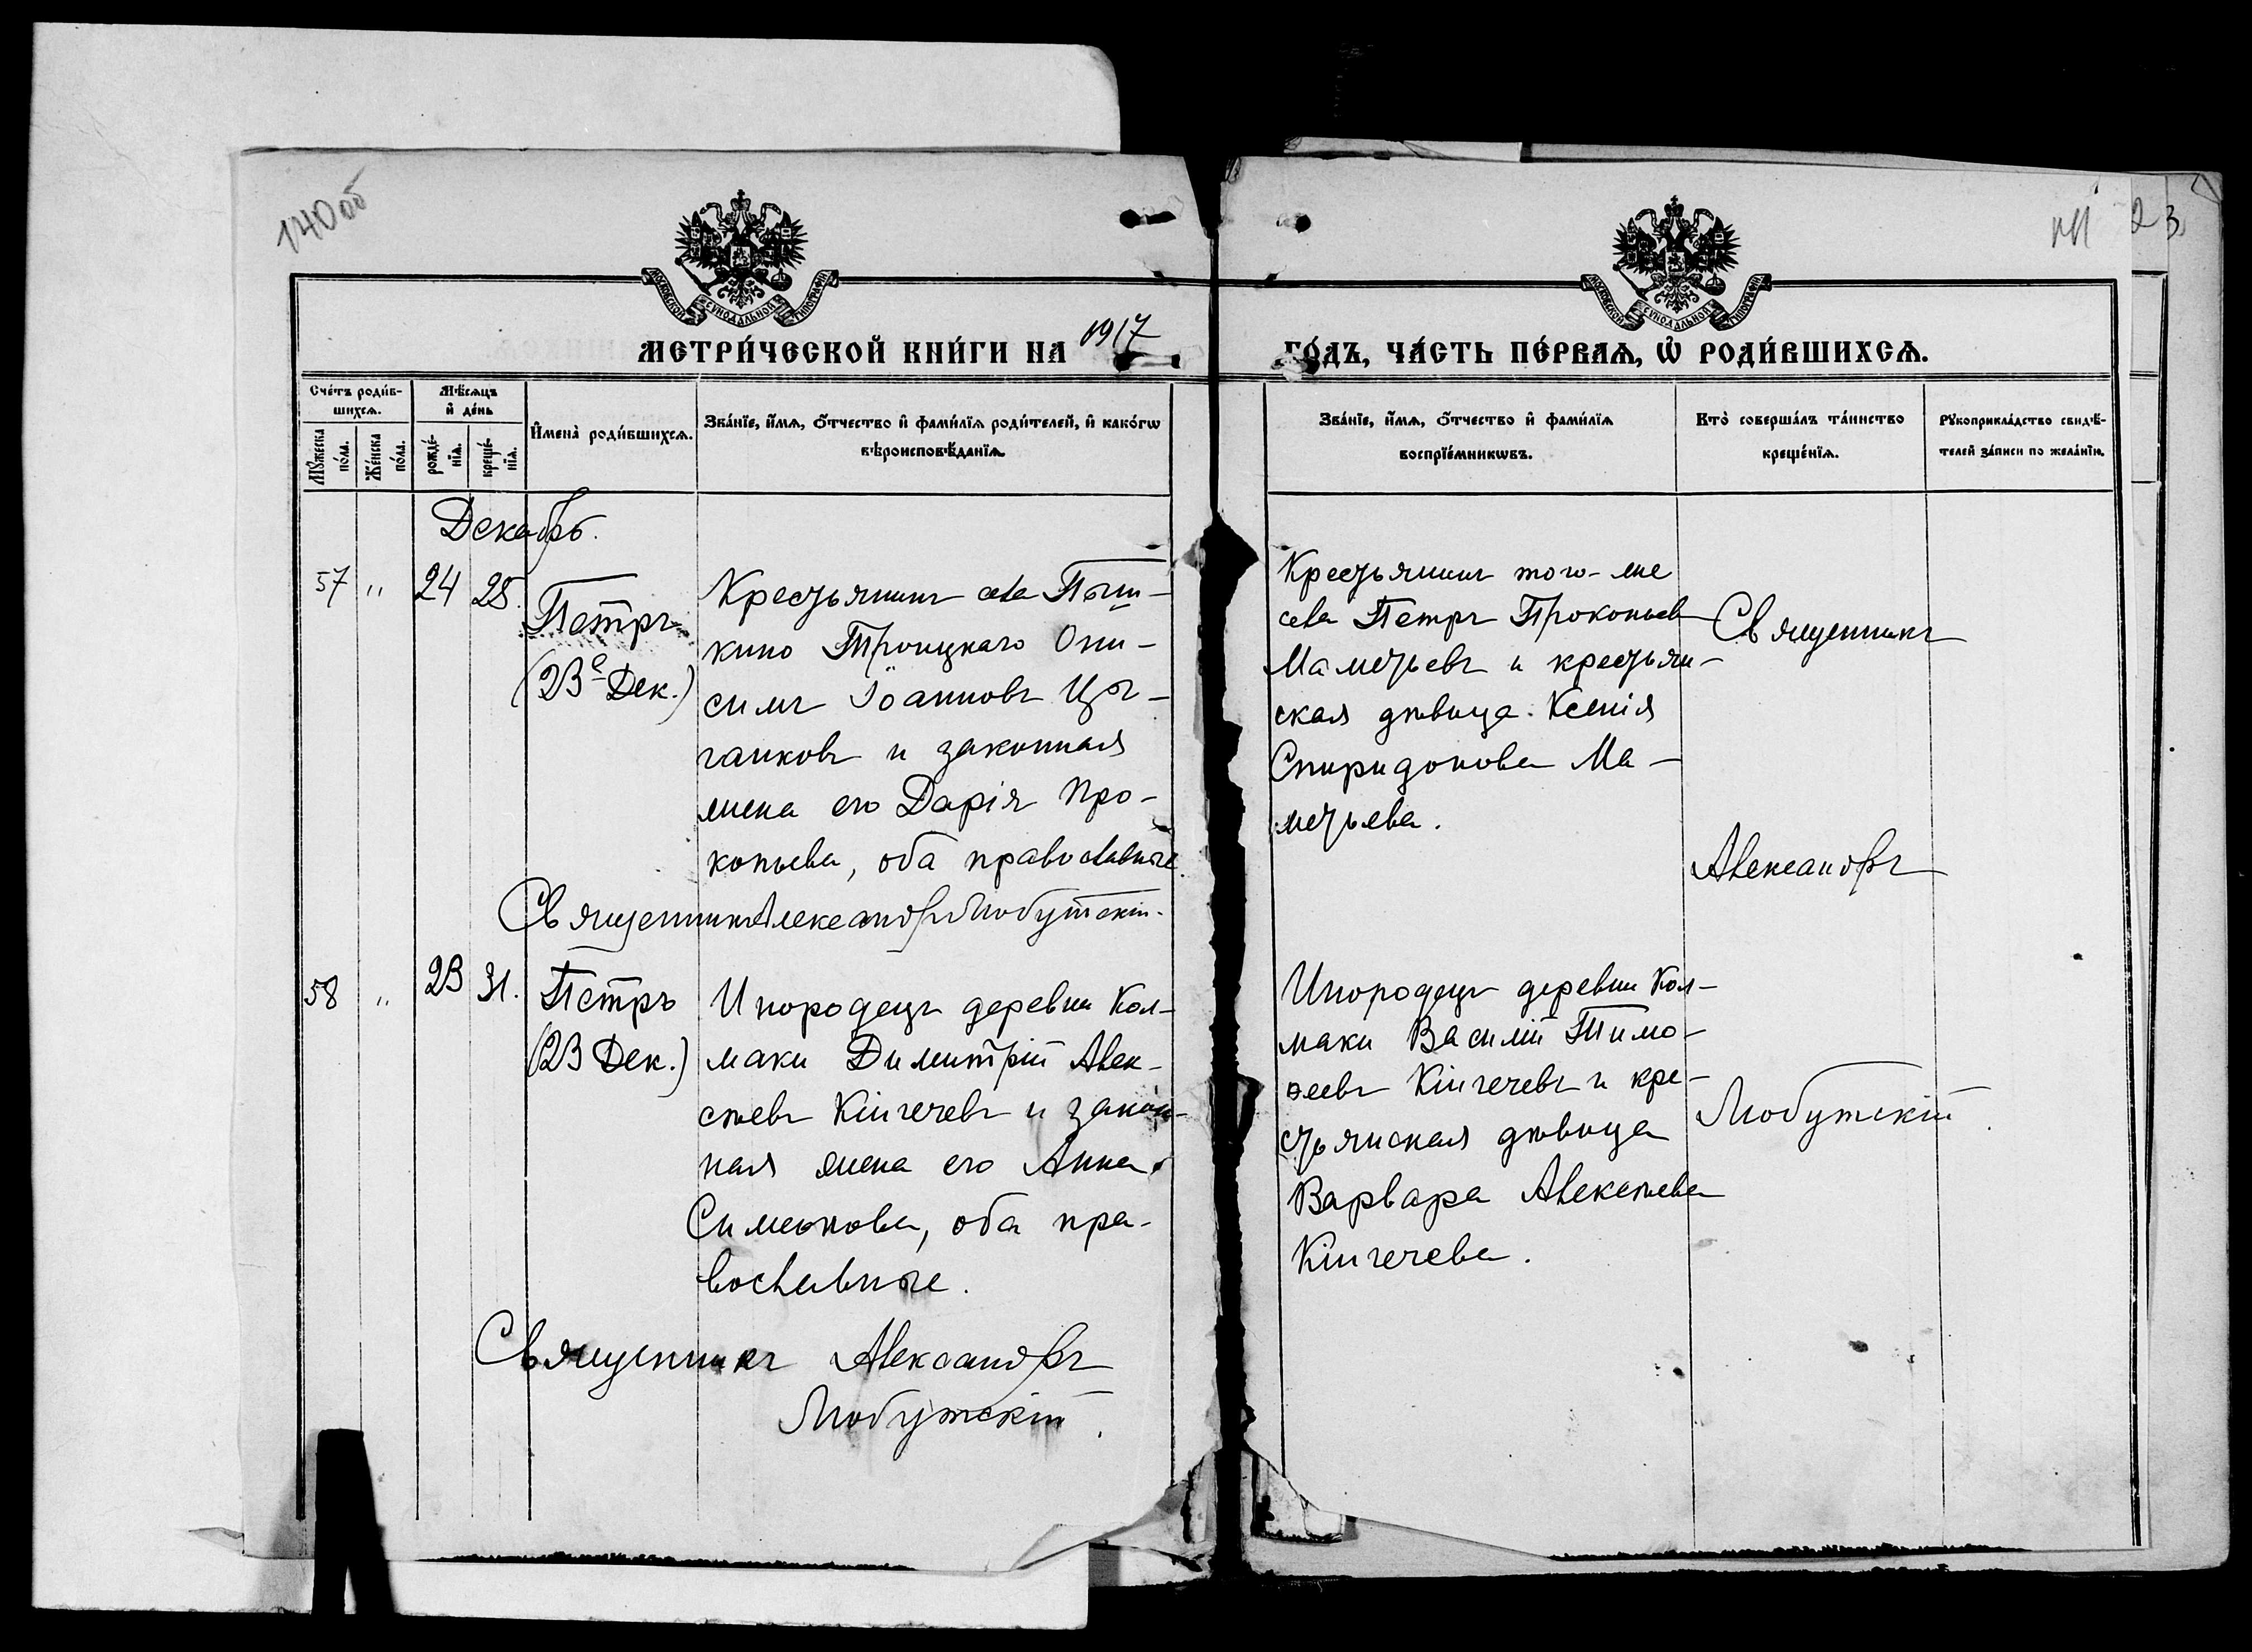 140 об
141
23
МОСКОВСКОЙ СѴНОДАЛЬНОЙ ТИПОГРАФІИ
МОСКОВСКОЙ СѴНОДАЛЬНОЙ ТИПОГРАФІИ
МЕТРИ́ЧЕСКОЙ КНИ́ГИ НА 1917 ГО́ДЪ, ЧА́СТЬ ПЕ́РВАѦ, Ѡ҆ РОДИ́ВШИХСѦ.
Сче́тъ роди́в-
шихсѧ.
Мꙋ́жеска по́ла.
Же́нска по́ла.
Мѣ́сѧцъ
и҆ де́нь
рожде́-
нїѧ.
креще́-
нїѧ.
И҆мена̀ роди́вшихсѧ.
Зва́нїе, и҆́мѧ, ѻ҆́тчество и҆ фами́лїѧ роди́телей, и҆ како́гѡ
вѣроисповѣ́данїѧ.
Зва́нїе, и҆́мѧ, ѻ҆́тчество и҆ фами́лїѧ
воспрїе́мникѡвъ.
Кто̀ соверша́лъ та́инство
креще́нїѧ.
Рꙋкоприкла́дство свидѣ́-
телей за́писи по жела́нїю.
Декабрь.
57 " 24 25.
Петръ
(23го Дек.)
Крестьянинъ села Пыш-
кино Троицкаго Они-
симъ Іоанновъ Цы-
ганковъ и законная
жена его Дарія Про-
копьева, оба православные.
Священникъ Александръ Любутскій.
Крестьянинъ того-же
села Петръ Прокопьевъ
Маметьевъ и крестьян-
ская дѣвица Ксенія
Спиридонова Ма-
метьева.
Священникъ
Александръ
Любутскій
58 " 23 31.
Петръ
(23 Дек.)
Инородецъ деревни Кол-
маки Димитрій Алек-
сѣевъ Кінгечевъ и закон-
ная жена его Анна
Симеонова, оба пра-
вославные.
Священникъ Александръ
Любутскій.
Инородецъ деревни Кол-
маки Василій Тимо-
ѳеевъ Кінгечевъ и кре-
стьянская дѣвица
Варвара Алексѣева
Кінгечева.